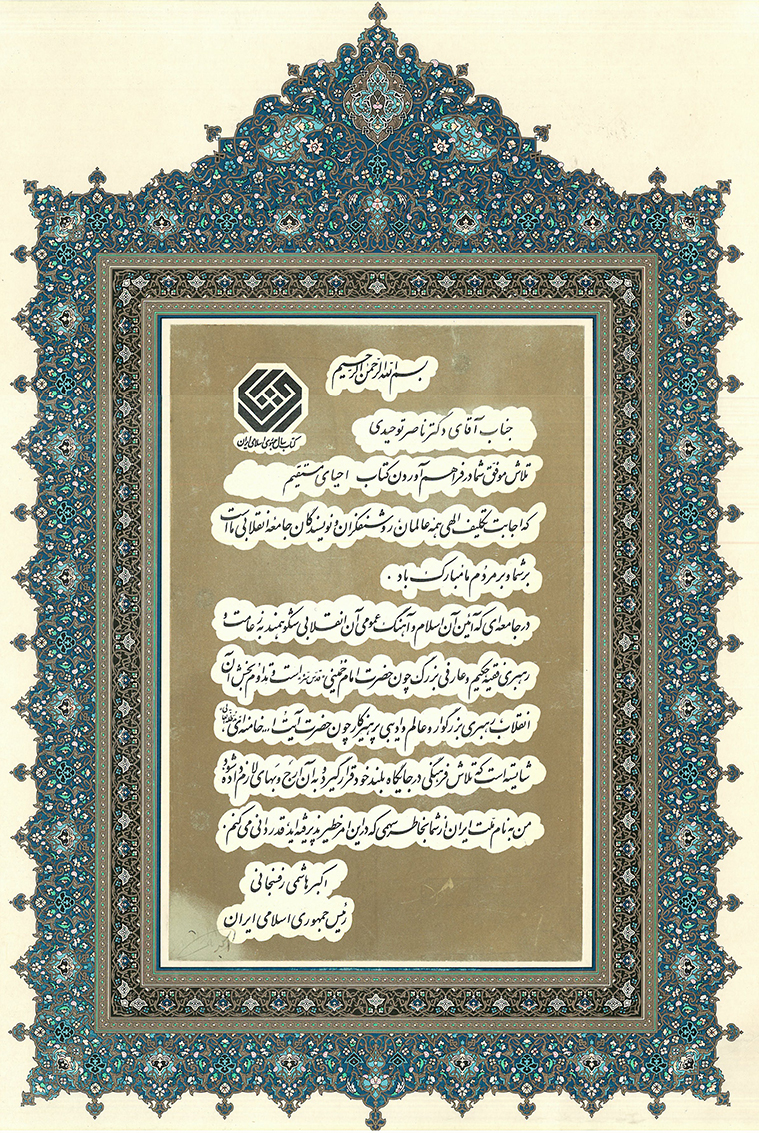 بسم الله الرحمن الرحیم
کتاب سال جمهوری اسلامی ایران
جناب آقای دکتر ناصر توحیدی
تلاش موفق شما در فراهم آوردن کتاب احیای مستقیم
که اجابت تکلیف الهی همه عالمان، روشنفکران و نویسندگان جامعه انقلابی ما است
بر شما و بر مردم ما مبارک باد.
در جامعه‌ای که آئین آن اسلام و آهنگ عمومی آن انقلابی شکوهمند به زعامت و
رهبری فقیه حکیم و عارفی بزرگ چون حضرت امام خمینی قدس سره است و تداوم بخش آن
انقلاب رهبری بزرگوار و عالم و ادیبی پرهیزکار چون حضرت آیت ا... خامنه‌ای
شایسته است که تلاش فرهنگی در جایگاه بلند خود قرار گیرد و به آن ارج و بهای لازم داده شود
من به نام ملت ایران از شما بخاطر سهمی که در این امر خطیر پذیرفته‌اید قدردانی می‌کنم.
اکبر هاشمی رفسنجانی
رئیس جمهوری اسلامی ایران